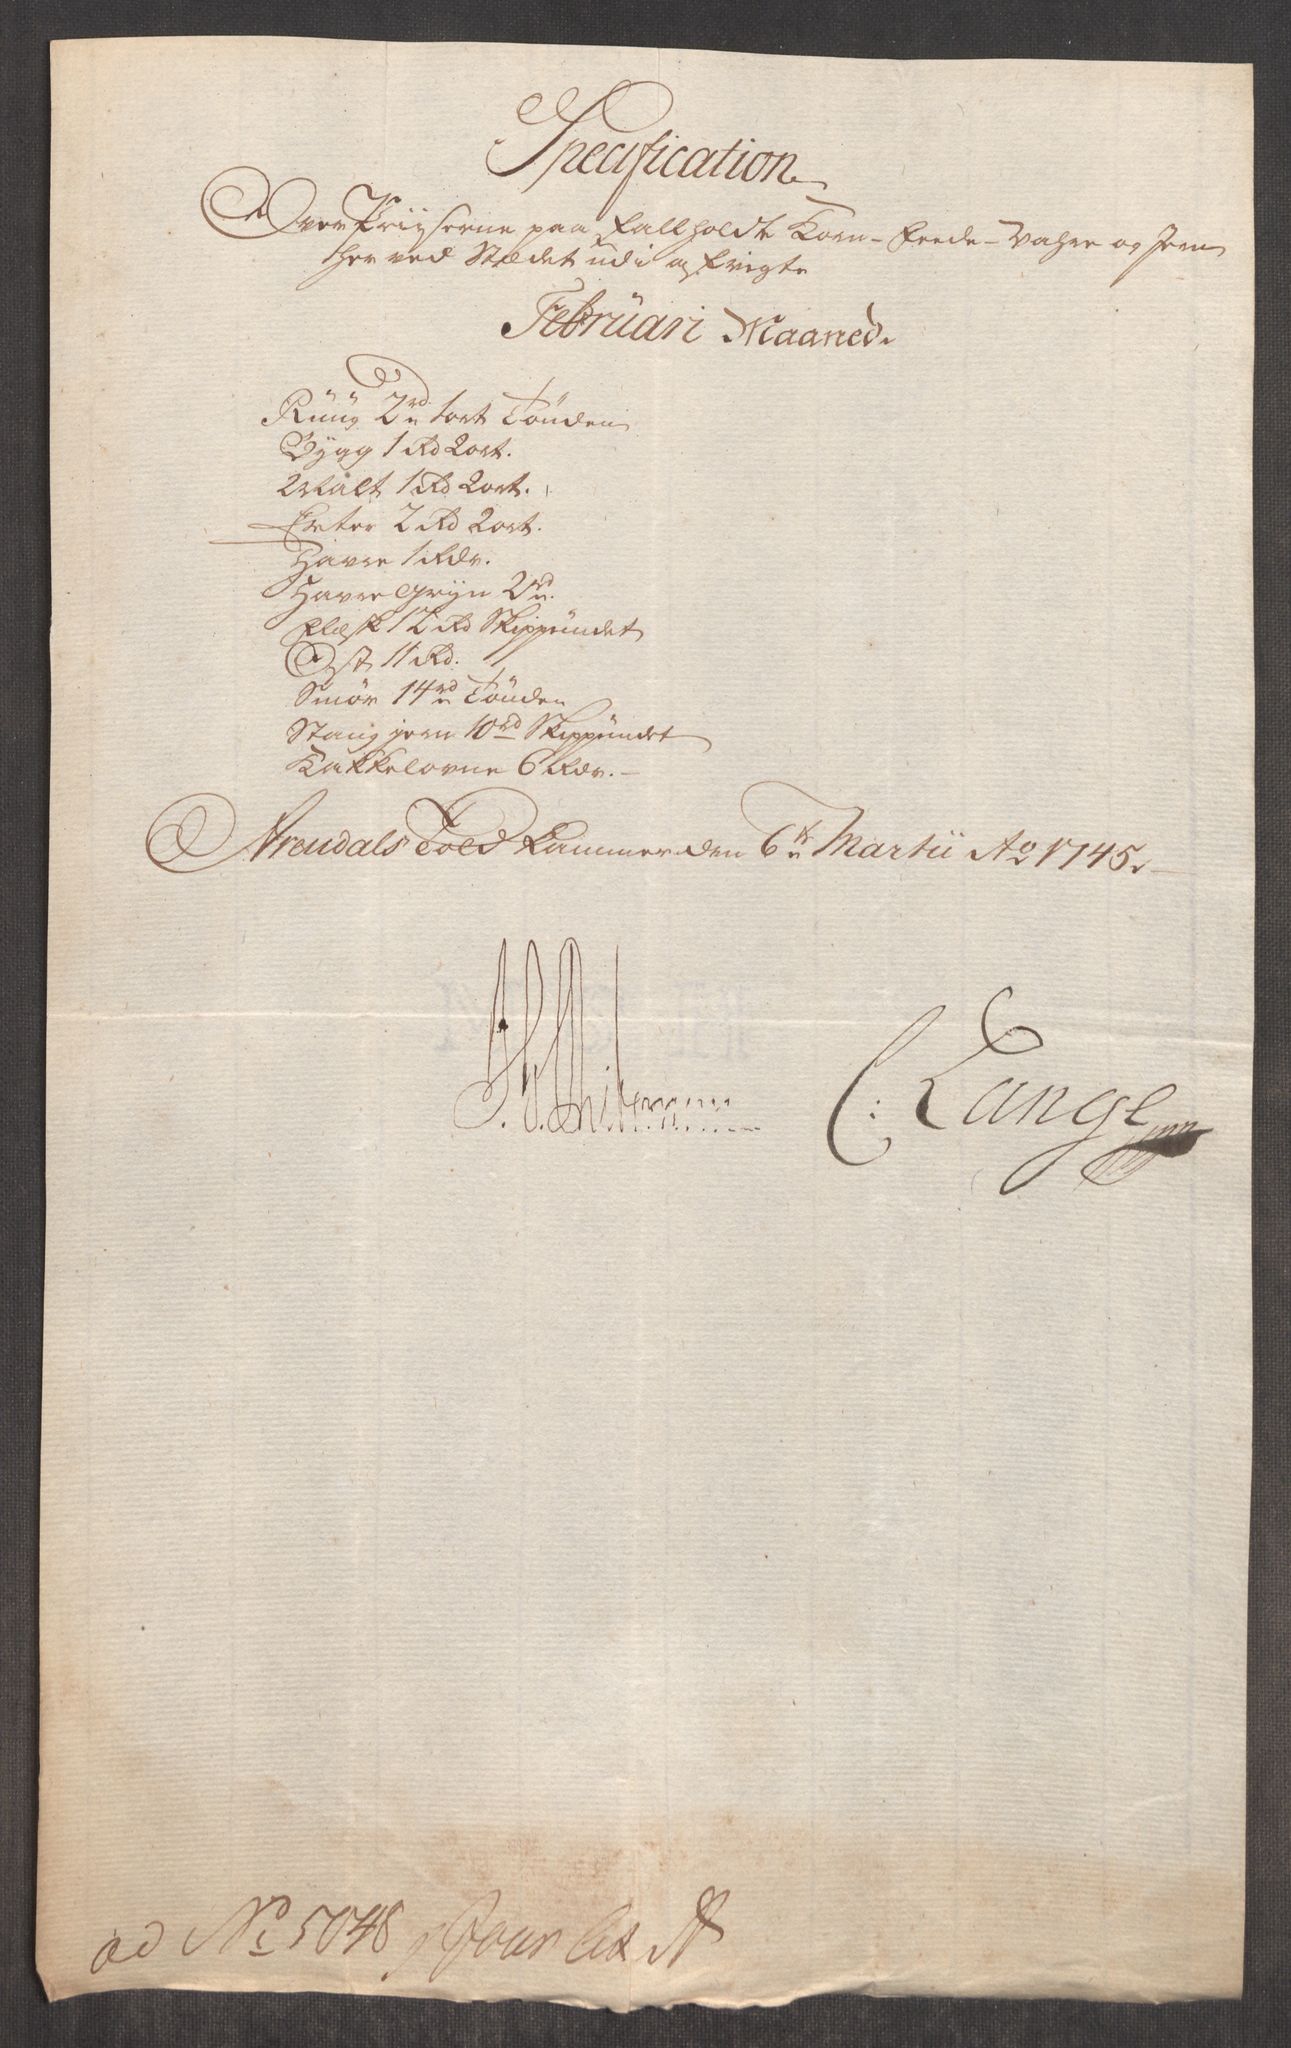 Specification
Over Priiserne paa Fallholdte Korn- Feede- Vahre og Jern
her ved Stædet udi afvigte
Februari Maaned.
Rüüg 2 rd 1 ort Tönden
Bygg 1 Rd 2 ort.
Malt 1 Rd 2 ort.
Erter 2 Rd 2 ort.
Havre 1 Rdr.
Havre Gryn 2 rd.
Flæsk 12 Rd Skippündet
Ost 11 Rd.
Smör 14 rd Tönden
Stang jern 10 rd Skippündet
Kakkelovne 6 Rdr.
Arendals Told Kammer den 6te Martii Ao 1745.
C: Lange
ad No 5048 Jour Lit A